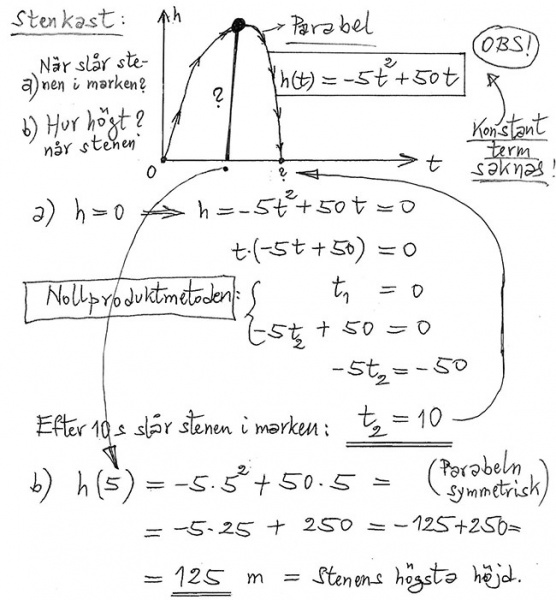 Stenkast:
h
Parabel
OBS!
När slår ste-
a) nen i marken?
h(t) = -5t² + 50t
?
b) Hur högt?
når stenen
Konstant
term
saknas!
0
?
t
a) h = 0 ⟹ h = -5t² + 50t = 0
t·(-5t + 50) = 0
Nollproduktmetoden: { t₁ = 0
-5t₂ + 50 = 0
-5t₂ = -50
Efter 10 s slår stenen i marken: t₂ = 10
b) h(5) = -5·5² + 50·5 = (Parabeln
symmetrisk)
= -5·25 + 250 = -125+250=
= 125 m = Stenens högsta höjd.